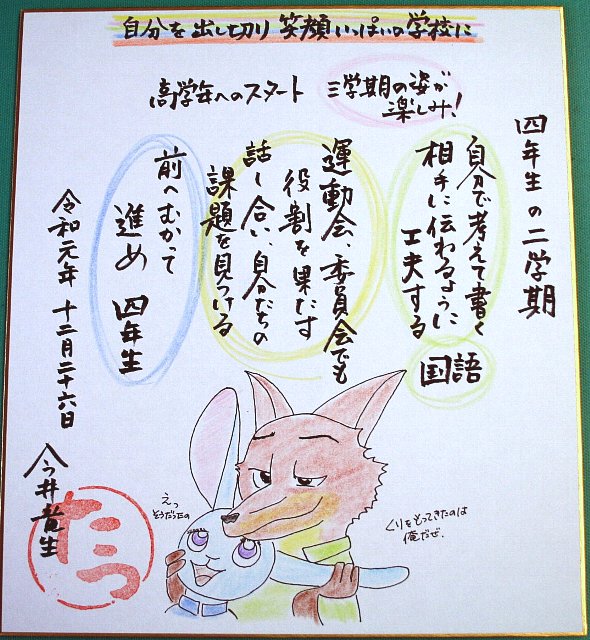 自分を出し切り 笑顔いっぱいの学校に
高学年へのスタート 三学期の姿が
楽しみ!
四年生の二学期
自分で考えて書く
相手に伝わるように
工夫する
国語
運動会、委員会でも
役割を果たす
話し合い、自分たちの
課題を見つける
前へむかって
進め 四年生
令和元年 十二月二十六日
今井竜生
たつ
えっ
そうだったの
くりをもってきたのは
俺だぜ.